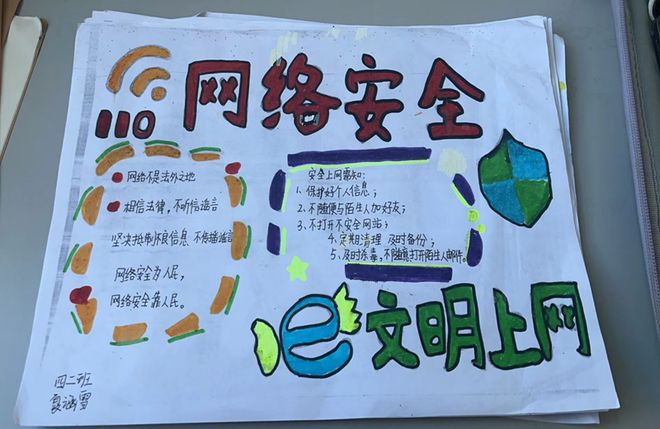 网络安全
110
网络不是法外之地
相信法律,不听信谣言
坚决抵制不良信息 不传播谣言
网络安全为人民,
网络安全靠人民。
安全上网需知:
1、保护好个人信息;
2、不随便与陌生人加好友;
3、不打开不安全网站;
4、定期清理 及时备份;
5、及时杀毒,不随意打开陌生人邮件。
e
文明上网
四二班
夏涵雪